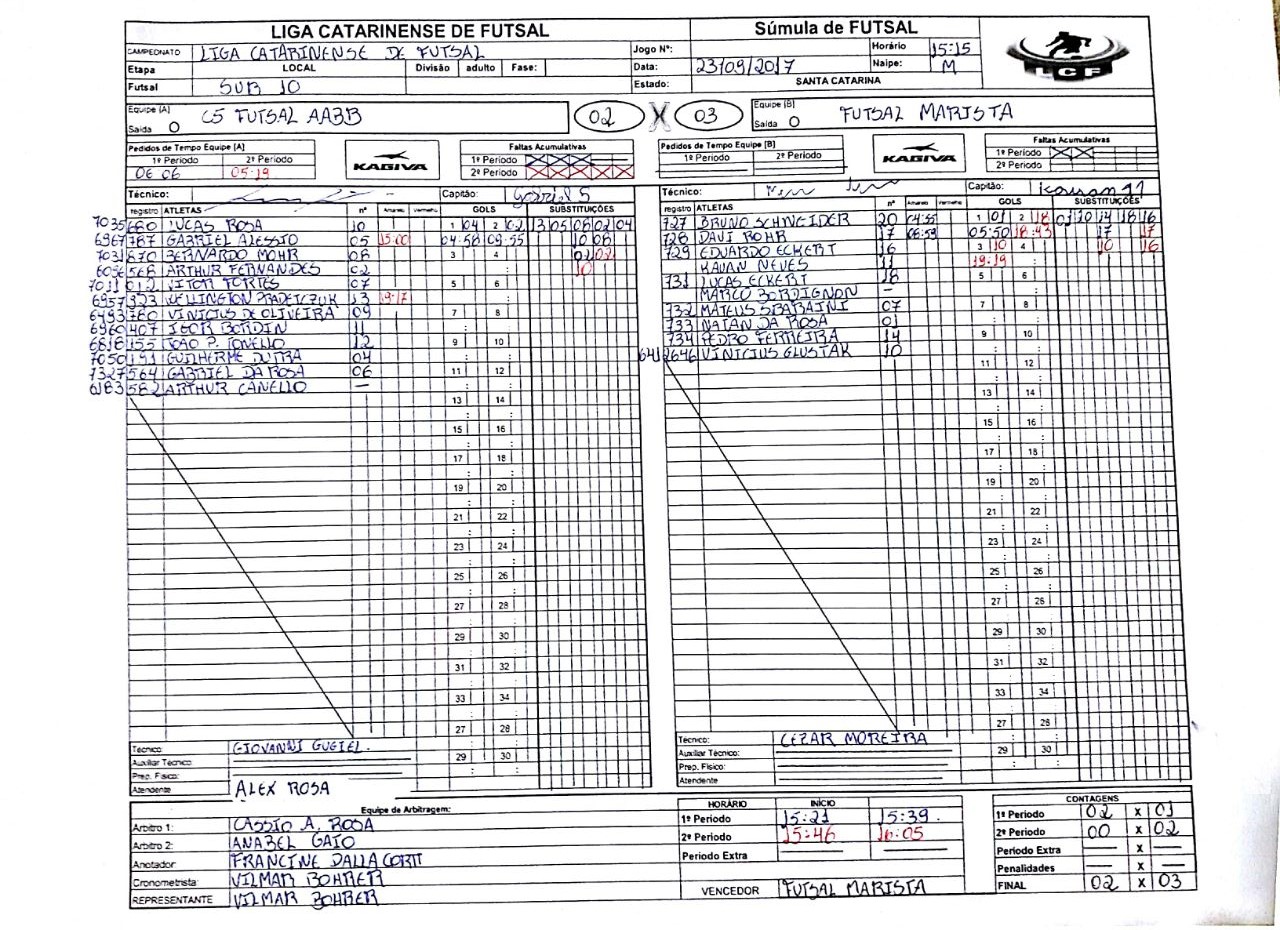 LIGA CATARINENSE DE FUTSAL
Súmula de FUTSAL
CAMPEONATO LIGA CATARINENSE DE FUTSAL
Jogo Nº: Horário 15:15
Etapa LOCAL Divisão adulto Fase:
Data: 23/09/2017 Naipe: M
Futsal SUB 10
Estado: SANTA CATARINA
LCF
Equipe [A] C5 FUTSAL AABB 02 X 03 Equipe [B] FUTSAL MARISTA
Saída O Saída O
Pedidos de Tempo Equipe [A]
1º Periodo 2º Periodo
06 06 05:19
KAGIVA
Faltas Acumulativas
1º Periodo
2º Periodo
Pedidos de Tempo Equipe [B]
1º Periodo 2º Periodo
KAGIVA
Faltas Acumulativas
1º Periodo
2º Periodo
Técnico: Capitão: Gabriel S
registro ATLETAS nº Amarelo Vermelho GOLS SUBSTITUIÇÕES
7035 680 LUCAS ROSA 10 1 04 2 02 13 05 08 02 04
6967 787 GABRIEL ALESSIO 05 15:00 04:58 09:55 10 08
7031 870 BERNARDO MOHR 08 3 4 02 02
6056 568 ARTHUR FERNANDES 02 10
7011 012 VITOR FORTES 07 5 6
6957 323 WELLINGTON 13 19:17
6493 760 VINICIUS DE OLIVEIRA 09 7 8
6960 407 IGOR BORDIN 11
6818 155 JOÃO P. TONELLO 12 9 10
7050 191 GUILHERME DUTRA 04
7327 564 GABRIEL DA ROSA 06 11 12
6183 582 ARTHUR CANELLO —
13 14
15 16
17 18
19 20
21 22
23 24
25 26
27 28
29 30
31 32
33 34
27 28
29 30
Técnico: GIOVANNI GUGIEL.
Auxiliar Técnico
Prep. Físico:
Atendente ALEX ROSA
Técnico: Capitão: Kauan 11
registro ATLETAS nº Amarelo Vermelho GOLS SUBSTITUIÇÕES
727 BRUNO SCHNEIDER 20 04:55 1 01 2 18 01 10 14 18 16
728 DAVI ROHR 17 06:59 05:50 18:43 17 17
729 EDUARDO ECKERT 16 3 10 4 10 16
KAUAN NEVES 11 19:19
731 LUCAS ECKERT 18 5 6
MARCO BORDIGNON —
732 MATEUS SBARAINI 07 7 8
733 NATAN DA ROSA 01
734 PEDRO FERREIRA 14 9 10
641 2646 VINICIUS GLUSTAK 10
11 12
13 14
15 16
17 18
19 20
21 22
23 24
25 26
27 28
29 30
31 32
33 34
27 28
29 30
Técnico: CEZAR MOREIRA
Auxiliar Técnico:
Prep. Físico:
Atendente
Equipe de Arbitragem:
Arbitro 1: CASSIO A. ROSA
Arbitro 2: ANABEL GAIO
Anotador FRANCINE DALLA CORT
Cronometrista: VILMAR BOHRER
REPRESENTANTE VILMAR BOHRER
HORÁRIO INÍCIO
1º Periodo 15:21 15:39.
2º Periodo 15:46 16:05
Periodo Extra
VENCEDOR FUTSAL MARISTA
CONTAGENS
1º Periodo 02 X 01
2º Periodo 00 X 02
Periodo Extra — X —
Penalidades — X —
FINAL 02 X 03